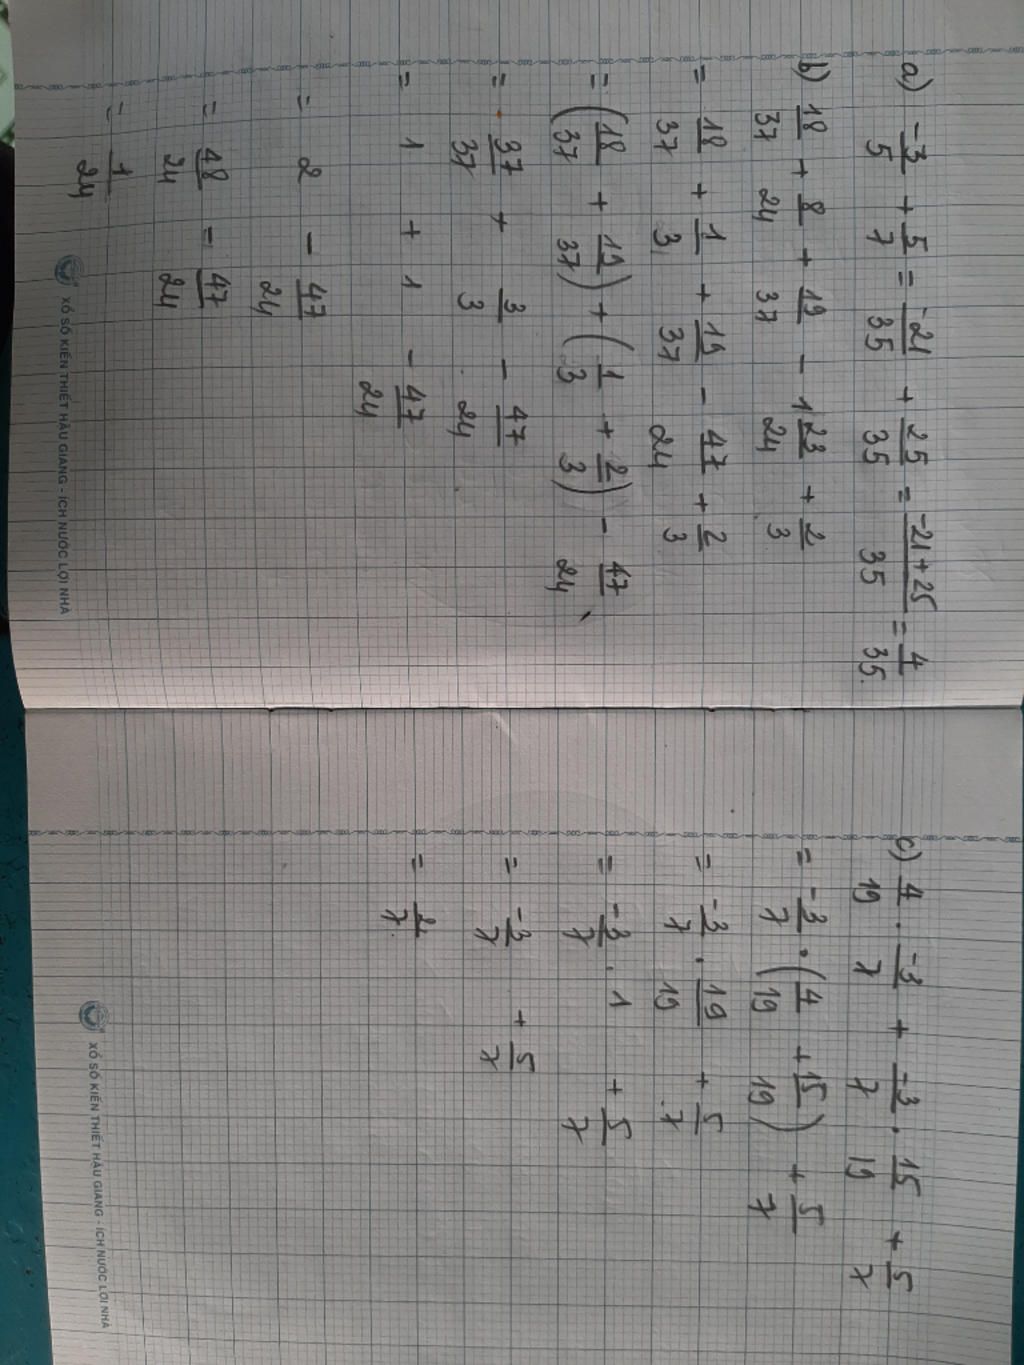 a) -3/5 + 5/7 = -21/35 + 25/35 = -21+25/35 = 4/35.
b) 18/37 + 8/24 + 19/37 - 1 23/24 + 2/3
= 18/37 + 1/3 + 19/37 - 47/24 + 2/3
= (18/37 + 19/37) + (1/3 + 2/3) - 47/24
= 37/37 + 3/3 - 47/24
= 1 + 1 - 47/24
= 2 - 47/24
= 48/24 - 47/24
= 1/24
XỔ SỐ KIẾN THIẾT HẬU GIANG - ÍCH NƯỚC LỢI NHÀ
c) 4/19 . -3/7 + -3/7 . 15/19 + 5/7
= -3/7 . (4/19 + 15/19) + 5/7
= -3/7 . 19/19 + 5/7
= -3/7 . 1 + 5/7
= -3/7 + 5/7
= 2/7.
XỔ SỐ KIẾN THIẾT HẬU GIANG - ÍCH NƯỚC LỢI NHÀ